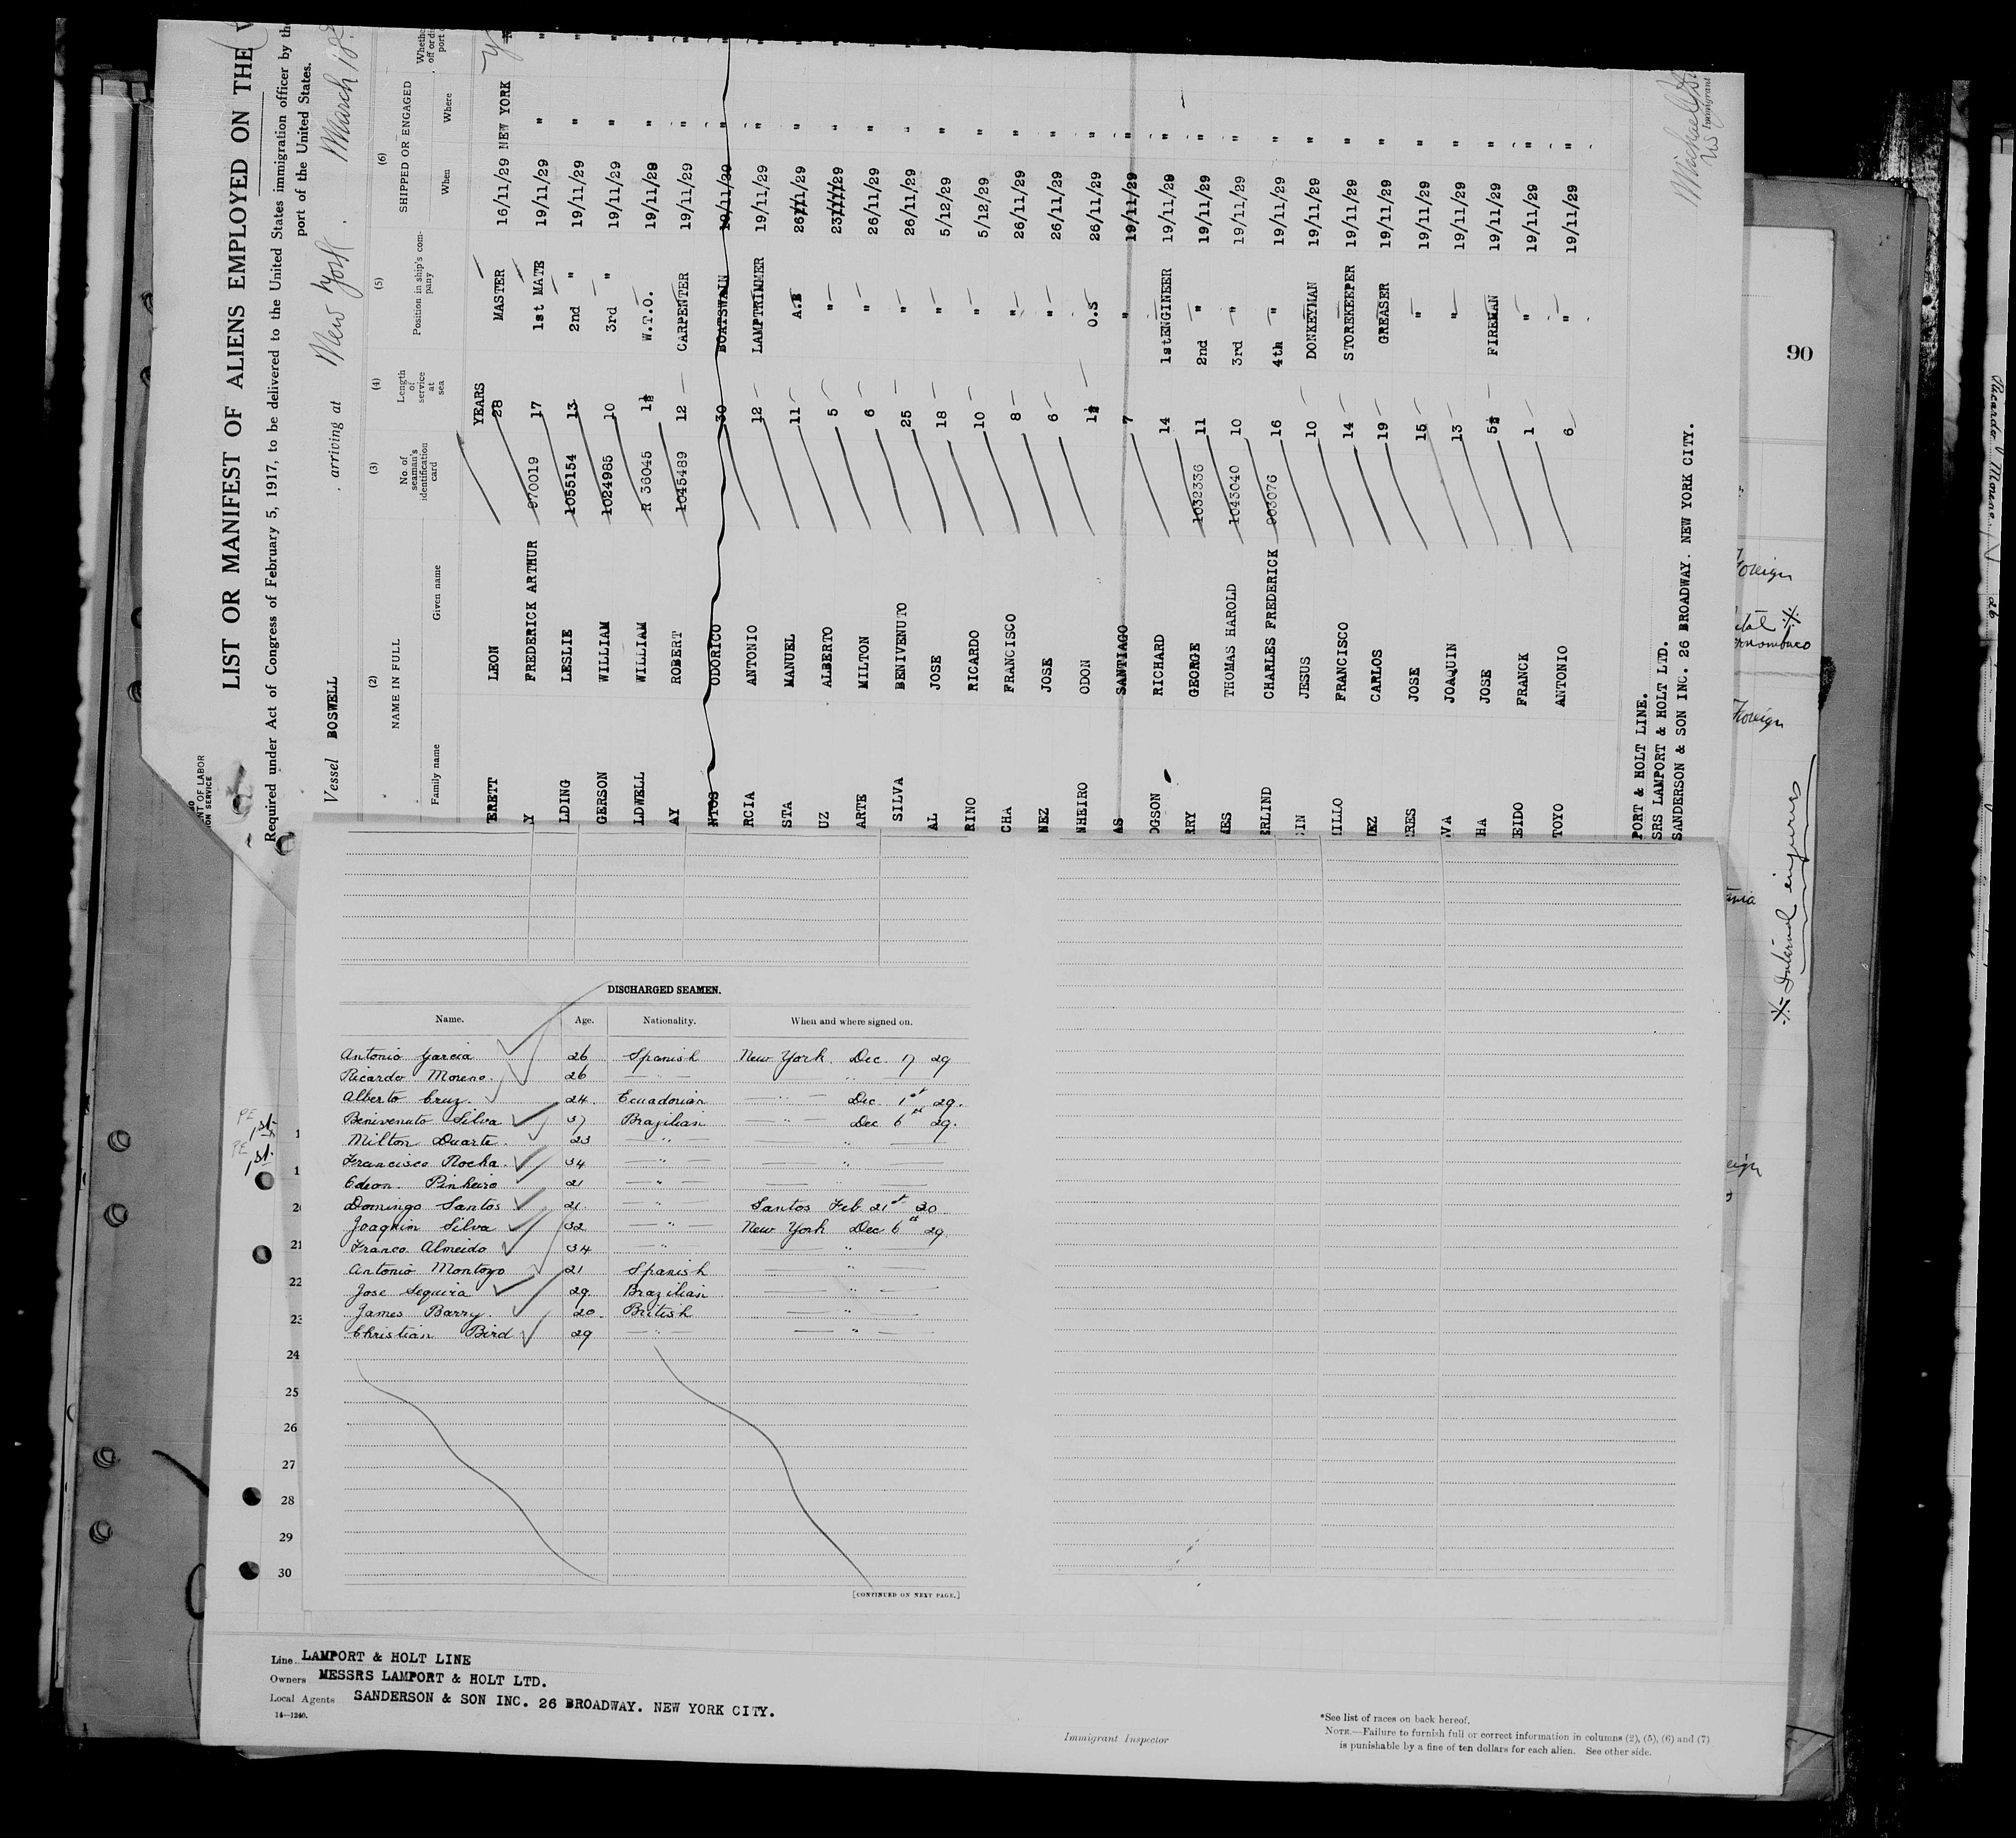 LIST OR MANIFEST OF ALIENS EMPLOYED ON THE
Required under Act of Congress of February 5, 1917, to be delivered to the United States immigration officer by the
port of the United States.
Vessel BOSWELL , arriving at New York , March 18
(2) (3) (4) (5) (6)
NAME IN FULL No. of seaman's identification card Length of service at sea Position in ship's company SHIPPED OR ENGAGED
Family name Given name When Where
YEARS
ERETT LEON 28 MASTER 16/11/29 NEW YORK
Y FREDERICK ARTHUR 970019 17 1st MATE 19/11/29 "
LDING LESLIE 1055154 13 2nd " 19/11/29 "
GERSON WILLIAM 1024985 10 3rd " 19/11/29 "
LDWELL WILLIAM R 36045 1½ W.T.O. 19/11/29 "
AY ROBERT 1045489 12 CARPENTER 19/11/29 "
NTOS ODORICO 30 BOATSWAIN 19/11/29 "
RCIA ANTONIO 12 LAMPTRIMMER 19/11/29 "
STA MANUEL 11 A.B 26/11/29 "
UZ ALBERTO 5 " 23/11/29 "
ARTE MILTON 6 " 26/11/29 "
SILVA BENIVENUTO 25 " 26/11/29 "
AL JOSE 18 " 5/12/29 "
RINO RICARDO 10 " 5/12/29 "
CHA FRANCISCO 8 " 26/11/29 "
NEZ JOSE 6 " 26/11/29 "
NHEIRO ODON 1½ O.S 26/11/29 "
AS SANTIAGO 7 " 19/11/29 "
DGSON RICHARD 14 1stENGINEER 19/11/29 "
RRY GEORGE 1032336 11 2nd " 19/11/29 "
ES THOMAS HAROLD 1043040 10 3rd " 19/11/29 "
ERLIND CHARLES FREDERICK 903076 16 4th " 19/11/29 "
IN JESUS 10 DONKEYMAN 19/11/29 "
ILLO FRANCISCO 14 STOREKEEPER 19/11/29 "
EZ CARLOS 19 GREASER 19/11/29 "
RES JOSE 15 " 19/11/29 "
VA JOAQUIN 13 " 19/11/29 "
HA JOSE 5½ FIREMAN 19/11/29 "
EIDO FRANCK 1 " 19/11/29 "
TOYO ANTONIO 6 " 19/11/29 "
PORT & HOLT LINE.
SRS LAMPORT & HOLT LTD.
SANDERSON & SON INC. 26 BROADWAY. NEW YORK CITY.
Immigrant
90
Foreign
Foreign
※ Internal injuries
DISCHARGED SEAMEN.
Name. Age. Nationality. When and where signed on.
Antonio Garcia 26 Spanish New York Dec 17 29
Ricardo Moreno. 26 — " — "
Alberto Cruz. 24. Ecuadorian — " — Dec. 1st 29.
Benivenuto Silva 37 Brazilian — " — Dec 6th 29.
Milton Duarte. 23 — " — "
Francisco Rocha. 34 — " — "
Edeon. Pinheiro 21 — " — "
Domingo Santos 21 — " — Santos Feb 21st 30
Joaquin Silva 32 — " — New York Dec 6th 29
Franco Almeido 34 — " — "
Antonio Montoyo 21 Spanish "
Jose Sequira 29. Brazilian "
James Barry. 20. British "
Christian Bird 29 — " — "
[CONTINUED ON NEXT PAGE.]
21
22
23
24
25
26
27
28
29
30
Line LAMPORT & HOLT LINE
Owners MESSRS LAMPORT & HOLT LTD.
Local Agents SANDERSON & SON INC. 26 BROADWAY. NEW YORK CITY.
14—1240.
Immigrant Inspector
*See list of races on back hereof.
NOTE.—Failure to furnish full or correct information in columns (2), (5), (6) and (7)
is punishable by a fine of ten dollars for each alien. See other side.